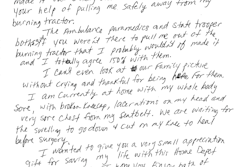 made it
your help of pulling me safely away from my
burning tractor.
The Ambulance paramedics and State trooper
both said you weren't there to pull me out of the
burning tractor that I probably would of made it
and I totally agree 150% with them.
I can't even look at our family picture
without crying and thankful for being here for them.
I am currently at home with my whole body
sore, with broken , lacerations on my head and
very sore chest from my seatbelt. We are waiting for
the swelling to go down & cut on my knee to heal
before surgery.
I wanted to give you a very small appreciation
gift for saving my life with this Home Depot
you enjoy both of